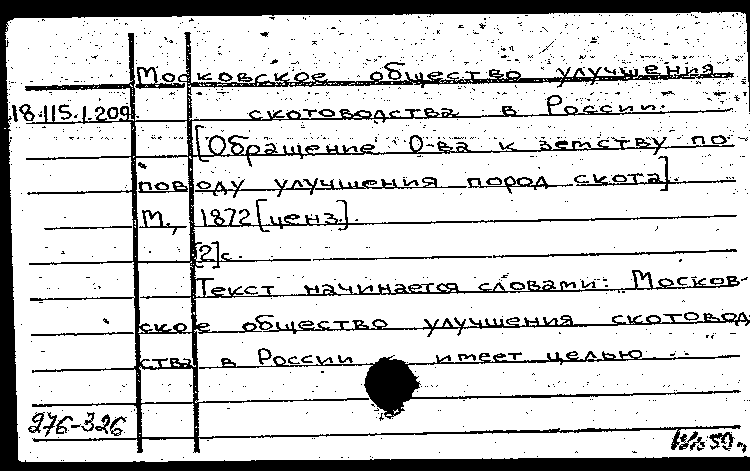 Московское общество улучшения
18.115.1.209 скотоводства в России.
[Обращение О-ва к земству по
поводу улучшения пород скота].
М., 1872 [ценз.].
[2] с.
Текст начинается словами: Москов-
ское общество улучшения скотовод
ства в России имеет целью...
276-326